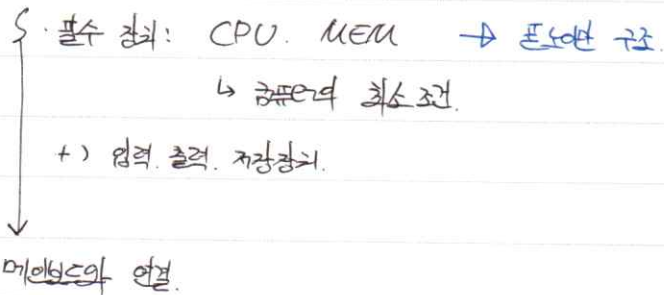 · 필수 장치: CPU. MEM → 폰노이만 구조.
↳ 컴퓨터의 최소 조건.
+) 입력. 출력. 저장장치.
메인보드와 연결.